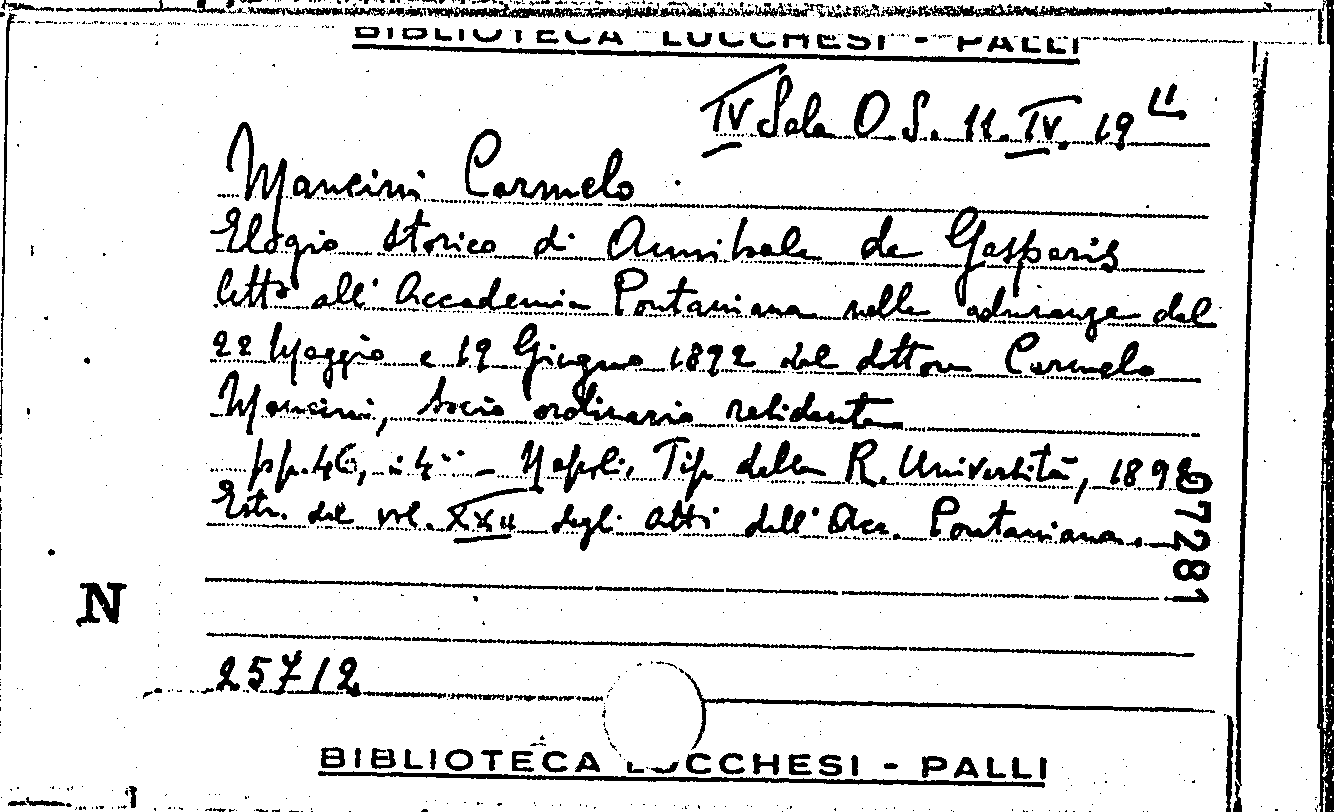 BIBLIOTECA LUCCHESI - PALLI
IV Sala O S. 11. IV. 19 11
Mancini Carmelo
Elogio storico di Annibale de Gasparis
letto all' Accademia Pontaniana nelle adunanze del
22 Maggio e 19 Giugno 1892 dal dottore Carmelo
Mancini, socio ordinario residente
pp. 46, in 4° - Napoli, Tip. della R. Università, 1892
Estr. dal vol. XXII degli Atti dell' Acc. Pontaniana.
07281
N
25712
BIBLIOTECA LUCCHESI - PALLI